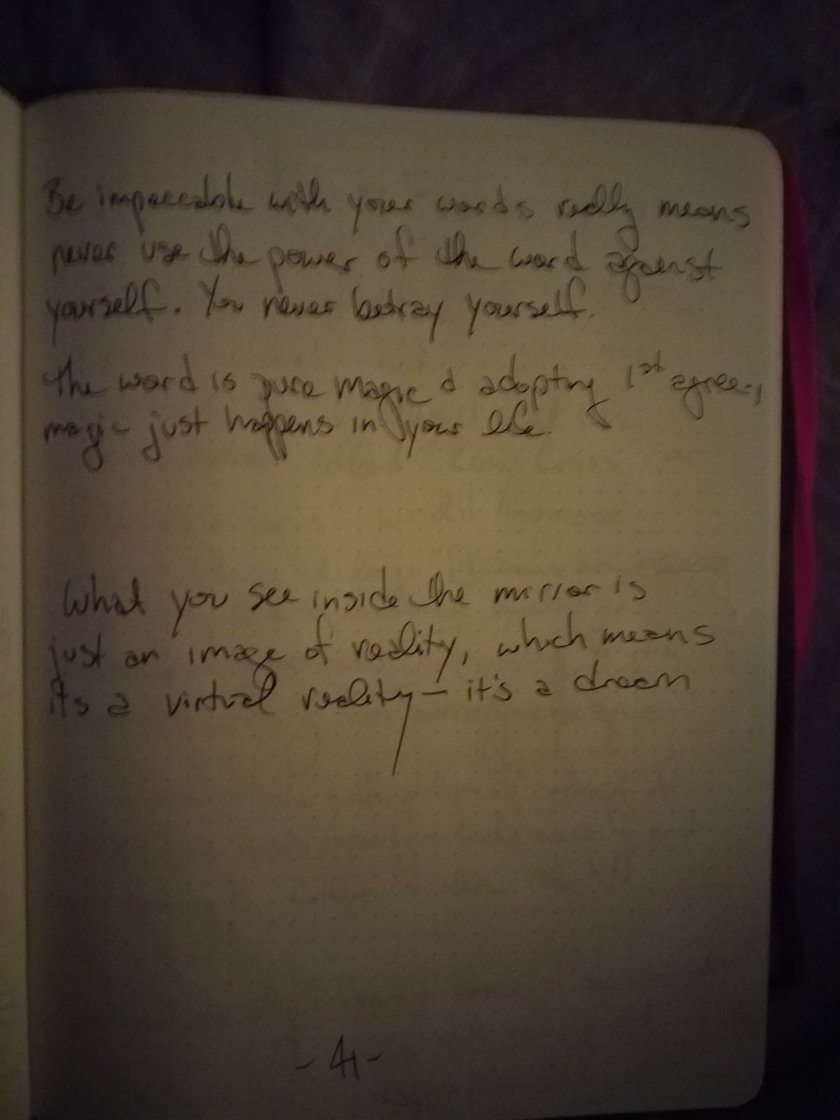 Be impeccable with your words really means
never use the power of the word against
yourself. You never betray yourself.
the word is pure magic & adopting 1st agree,
magic just happens in your life
What you see inside the mirror is
just an image of reality, which means
its a virtual reality – it's a dream